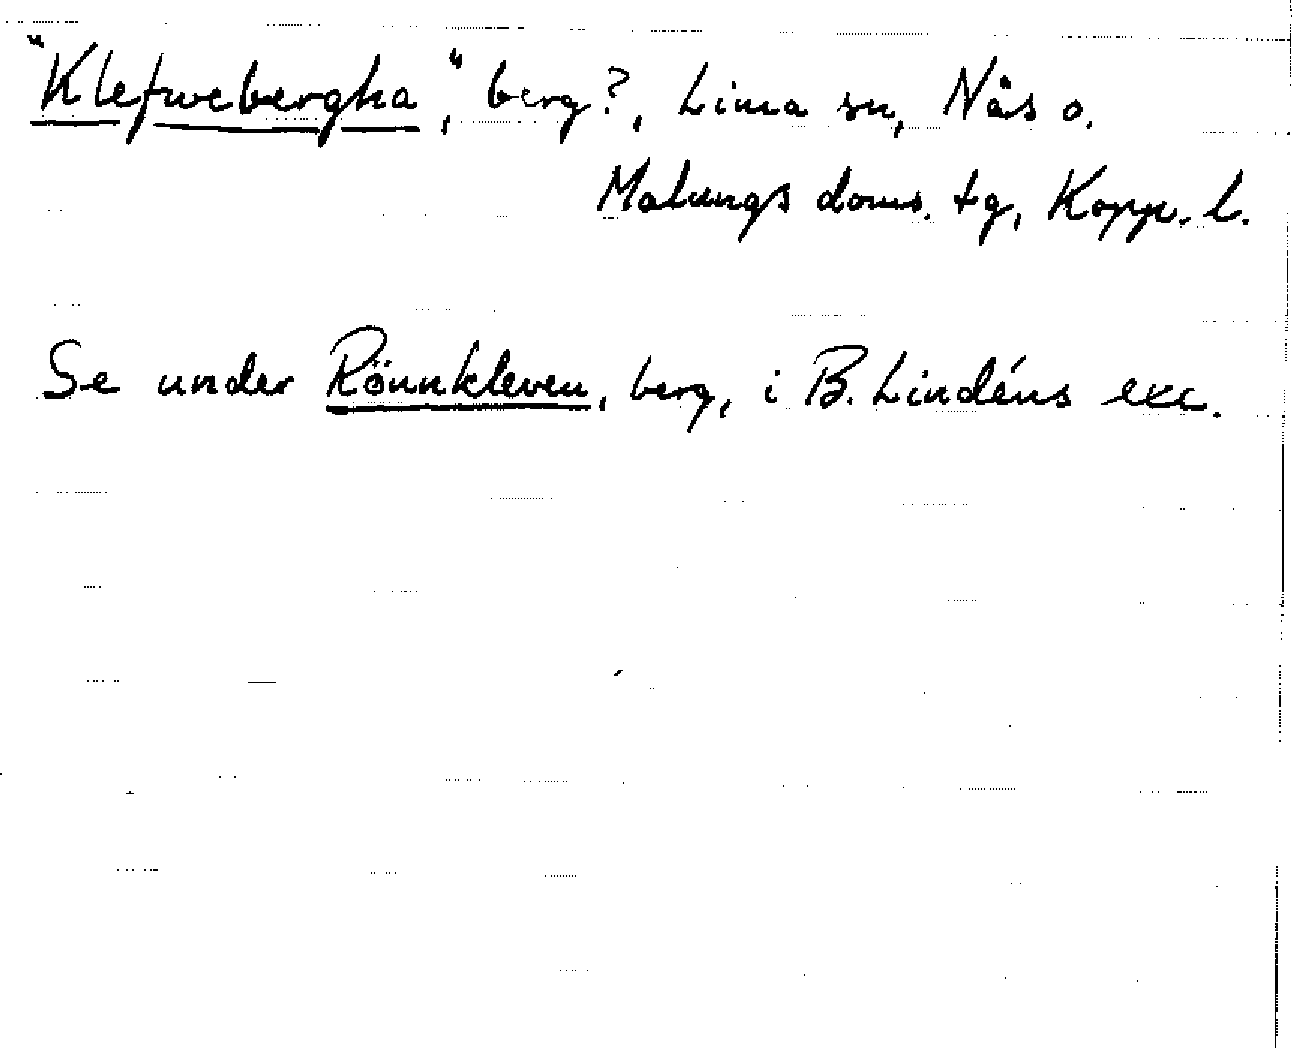 "Klefwebergha", berg?, Lima sn, Nås o.
Malungs doms. tg, Kopp. l.
Se under Rönnkleven, berg, i B. Lindéns exc.